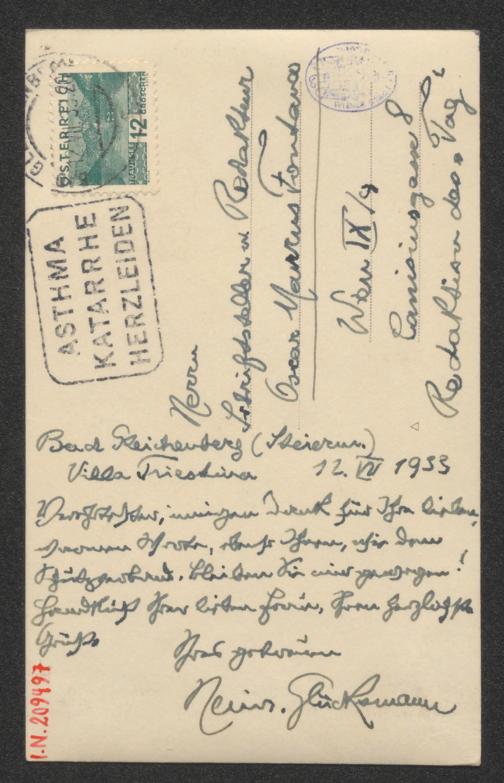 ÖSTERREICH
12
GROSCHEN
ASTHMA
KATARRHE
HERZLEIDEN
Herrn
Schriftsteller u Redakteur
Oscar Maurus Fontana
Wien IX/9
Canisiusgasse 8
Redaktion des „Tag“
Bad Gleichenberg (Steierm.)
Villa Triestina 12. VII 1933
Verehrtester, innigen Dank für Ihre lieben,
warmen Worte, ebenso Ihnen, wie dem
Bleiben Sie mir gewogen!
Handkuß Ihrer lieben Frau, Ihnen herzlichste
Grüße
Ihres getreuen
Heinr. Glücksmann
I.N. 209497